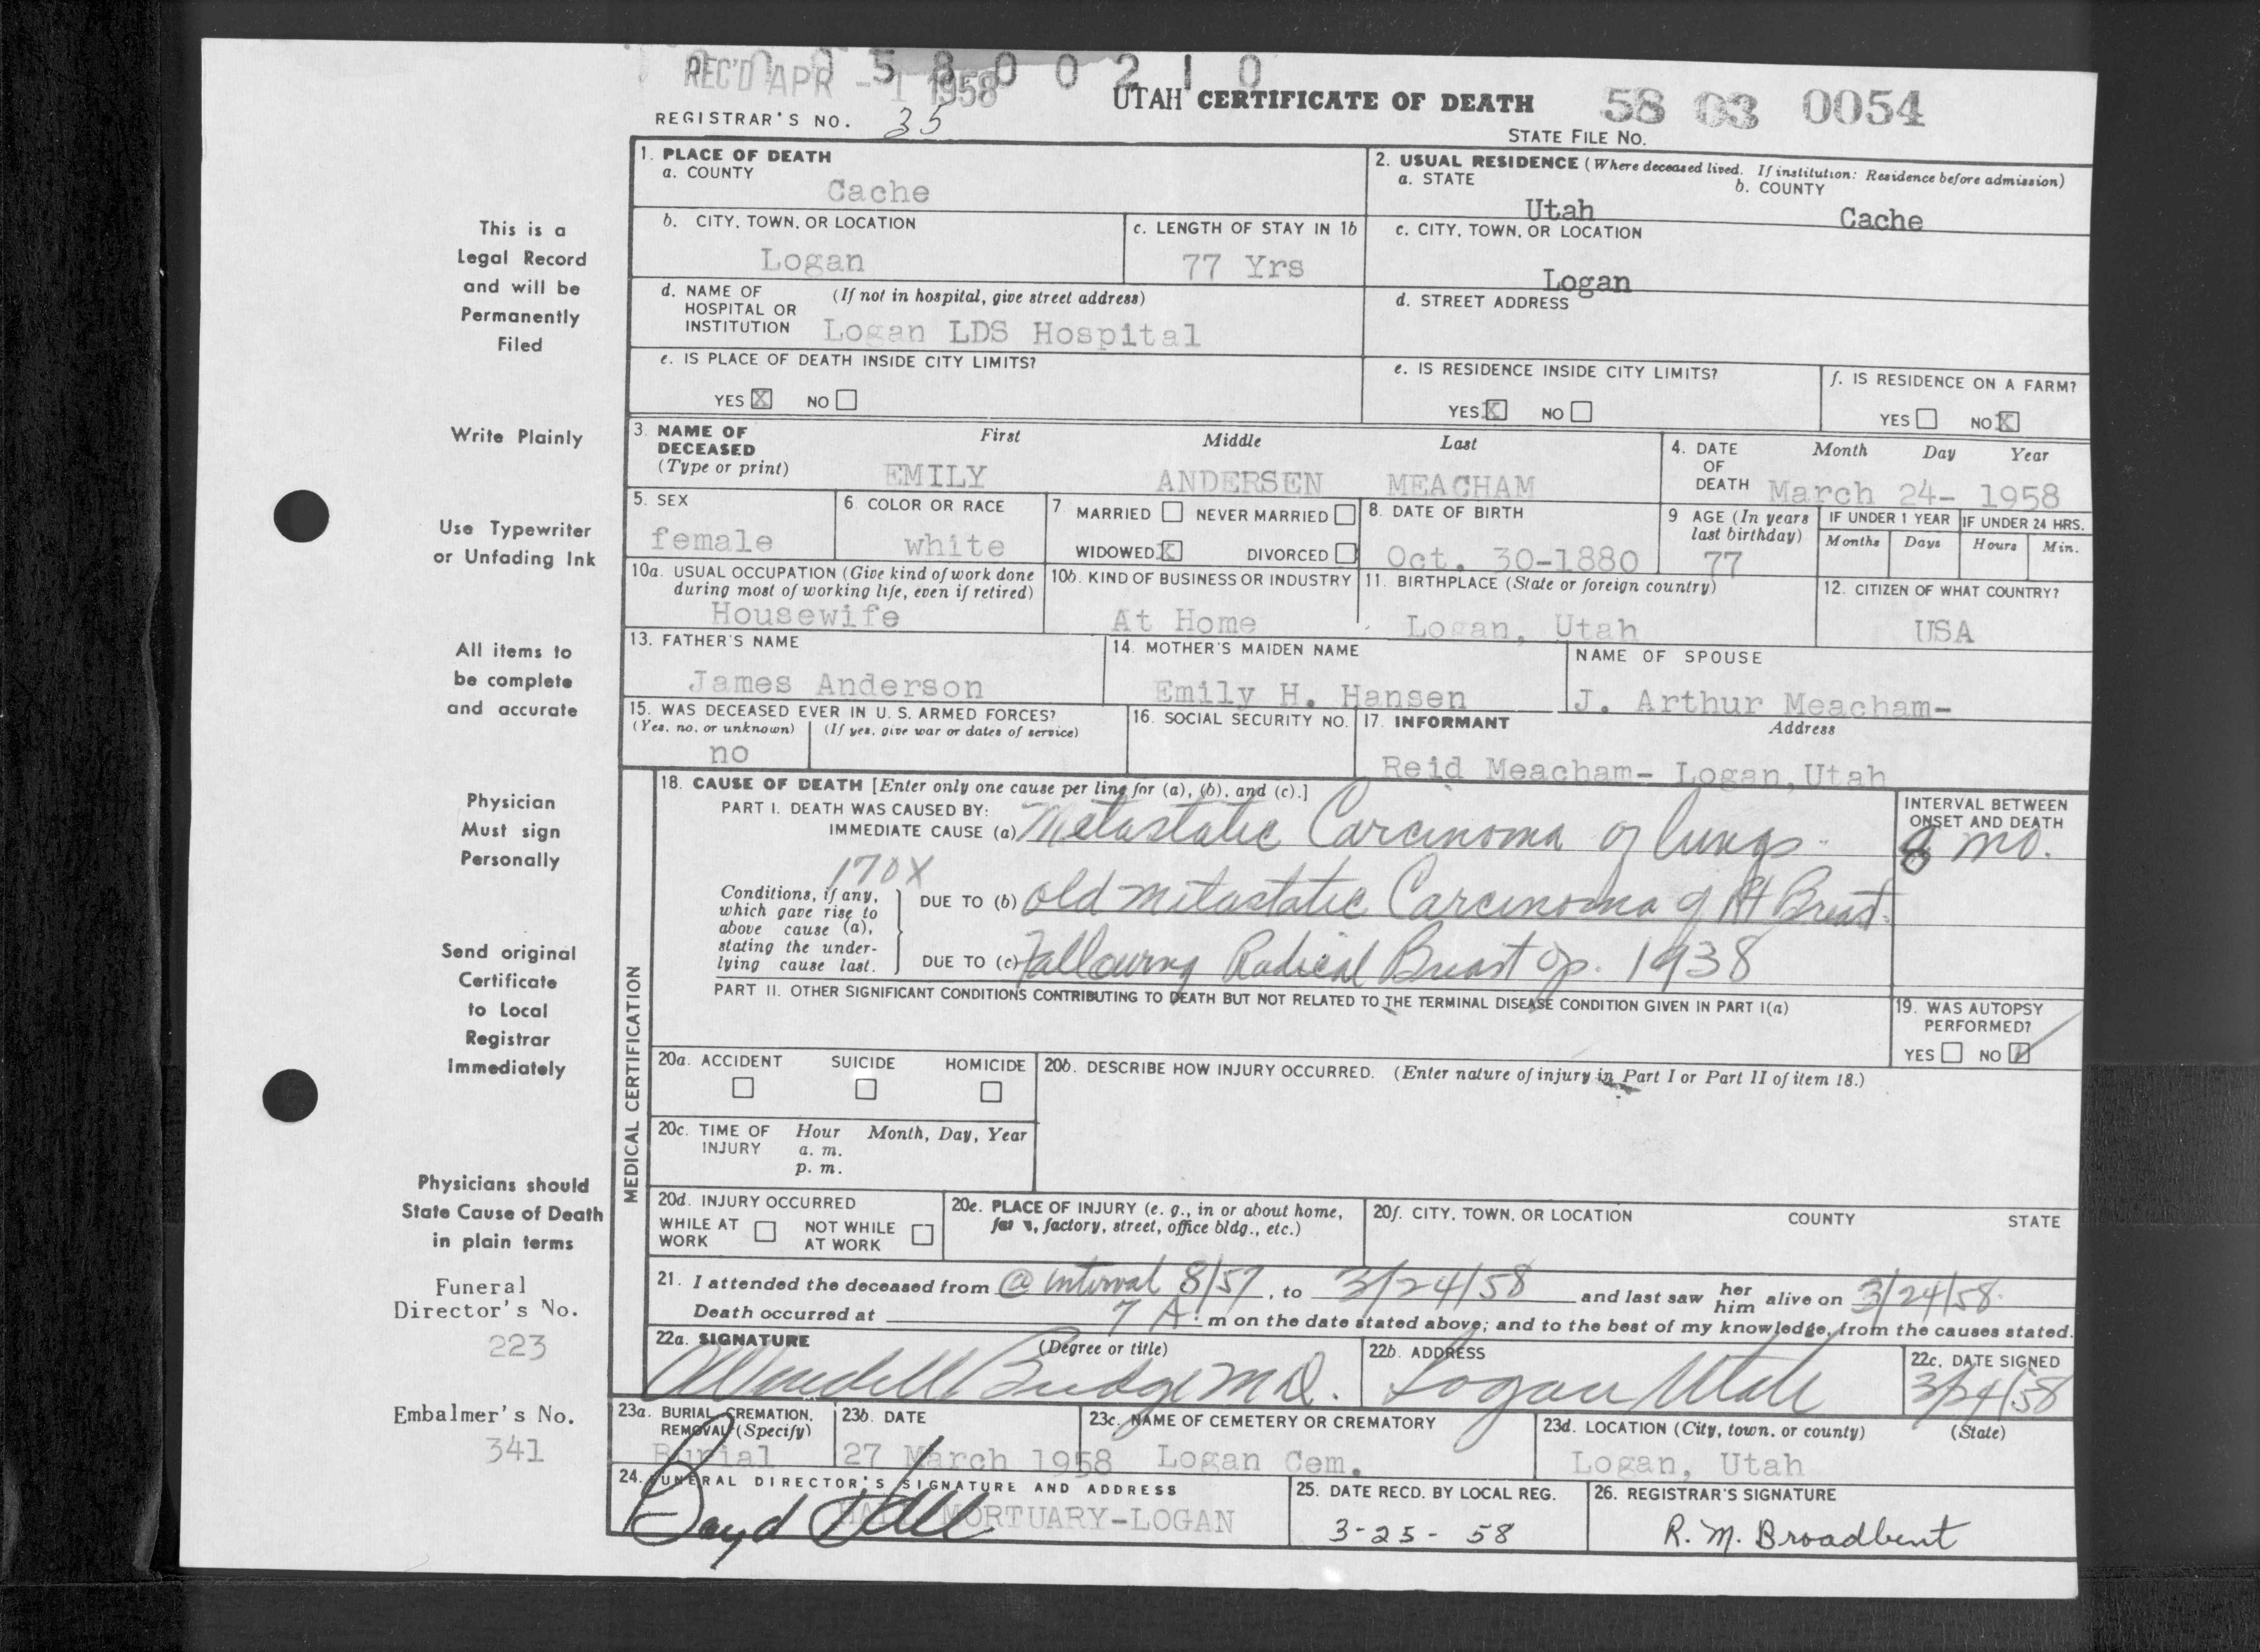 REC'D APR - 1 1958
5 8 0 0 2 1 0
UTAH CERTIFICATE OF DEATH
58 03 0054
REGISTRAR'S NO. 35
STATE FILE NO.
This is a
Legal Record
and will be
Permanently
Filed
Write Plainly
Use Typewriter
or Unfading Ink
All items to
be complete
and accurate
Physician
Must sign
Personally
Send original
Certificate
to Local
Registrar
Immediately
Physicians should
State Cause of Death
in plain terms
Funeral
Director's No.
223
Embalmer's No.
341
1. PLACE OF DEATH
a. COUNTY
Cache
2. USUAL RESIDENCE (Where deceased lived. If institution: Residence before admission)
a. STATE b. COUNTY
Utah Cache
b. CITY, TOWN, OR LOCATION
Logan
c. LENGTH OF STAY IN 1b
77 Yrs
c. CITY, TOWN, OR LOCATION
Logan
d. NAME OF (If not in hospital, give street address)
HOSPITAL OR
INSTITUTION Logan LDS Hospital
d. STREET ADDRESS
e. IS PLACE OF DEATH INSIDE CITY LIMITS?
YES X NO
e. IS RESIDENCE INSIDE CITY LIMITS?
YES X NO
f. IS RESIDENCE ON A FARM?
YES NO X
3. NAME OF DECEASED
(Type or print)
First Middle Last
EMILY ANDERSEN MEACHAM
4. DATE OF DEATH
Month Day Year
March 24- 1958
5. SEX
female
6 COLOR OR RACE
white
7 MARRIED NEVER MARRIED
WIDOWED X DIVORCED
8. DATE OF BIRTH
Oct. 30-1880
9 AGE (In years
last birthday)
77
IF UNDER 1 YEAR
Months Days
IF UNDER 24 HRS.
Hours Min.
10a. USUAL OCCUPATION (Give kind of work done
during most of working life, even if retired)
Housewife
10b. KIND OF BUSINESS OR INDUSTRY
At Home
11. BIRTHPLACE (State or foreign country)
Logan, Utah
12. CITIZEN OF WHAT COUNTRY?
USA
13. FATHER'S NAME
James Anderson
14. MOTHER'S MAIDEN NAME
Emily H. Hansen
NAME OF SPOUSE
J. Arthur Meacham-
15. WAS DECEASED EVER IN U. S. ARMED FORCES?
(Yes, no, or unknown) (If yes, give war or dates of service)
no
16. SOCIAL SECURITY NO.
17. INFORMANT Address
Reid Meacham- Logan, Utah
MEDICAL CERTIFICATION
18. CAUSE OF DEATH [Enter only one cause per line for (a), (b), and (c).]
PART I. DEATH WAS CAUSED BY:
IMMEDIATE CAUSE (a) Metastatic Carcinoma of lungs.
INTERVAL BETWEEN
ONSET AND DEATH
8 mo.
170X
Conditions, if any,
which gave rise to
above cause (a),
stating the under-
lying cause last.
DUE TO (b) old metastatic Carcinoma of Rt Breast.
DUE TO (c) Following Radical Breast op. 1938
PART II. OTHER SIGNIFICANT CONDITIONS CONTRIBUTING TO DEATH BUT NOT RELATED TO THE TERMINAL DISEASE CONDITION GIVEN IN PART I(a)
19. WAS AUTOPSY
PERFORMED?
YES NO
20a. ACCIDENT SUICIDE HOMICIDE
20b. DESCRIBE HOW INJURY OCCURRED. (Enter nature of injury in Part I or Part II of item 18.)
20c. TIME OF INJURY Hour Month, Day, Year
a. m.
p. m.
20d. INJURY OCCURRED
WHILE AT WORK NOT WHILE AT WORK
20e. PLACE OF INJURY (e. g., in or about home,
factory, street, office bldg., etc.)
20f. CITY, TOWN, OR LOCATION COUNTY STATE
21. I attended the deceased from @ interval 8/57, to 3/24/58 and last saw her him alive on 3/24/58.
Death occurred at 7 A. m on the date stated above; and to the best of my knowledge, from the causes stated.
22a. SIGNATURE (Degree or title)
Wendell Budge M D.
22b. ADDRESS
Logan Utah
22c. DATE SIGNED
3/24/58
23a. BURIAL, CREMATION,
REMOVAL (Specify)
Burial
23b. DATE
27 March 1958
23c. NAME OF CEMETERY OR CREMATORY
Logan Cem.
23d. LOCATION (City, town, or county) (State)
Logan, Utah
24. FUNERAL DIRECTOR'S SIGNATURE AND ADDRESS
Boyd Hall
HALL MORTUARY-LOGAN
25. DATE RECD. BY LOCAL REG.
3-25-58
26. REGISTRAR'S SIGNATURE
R. M. Broadbent